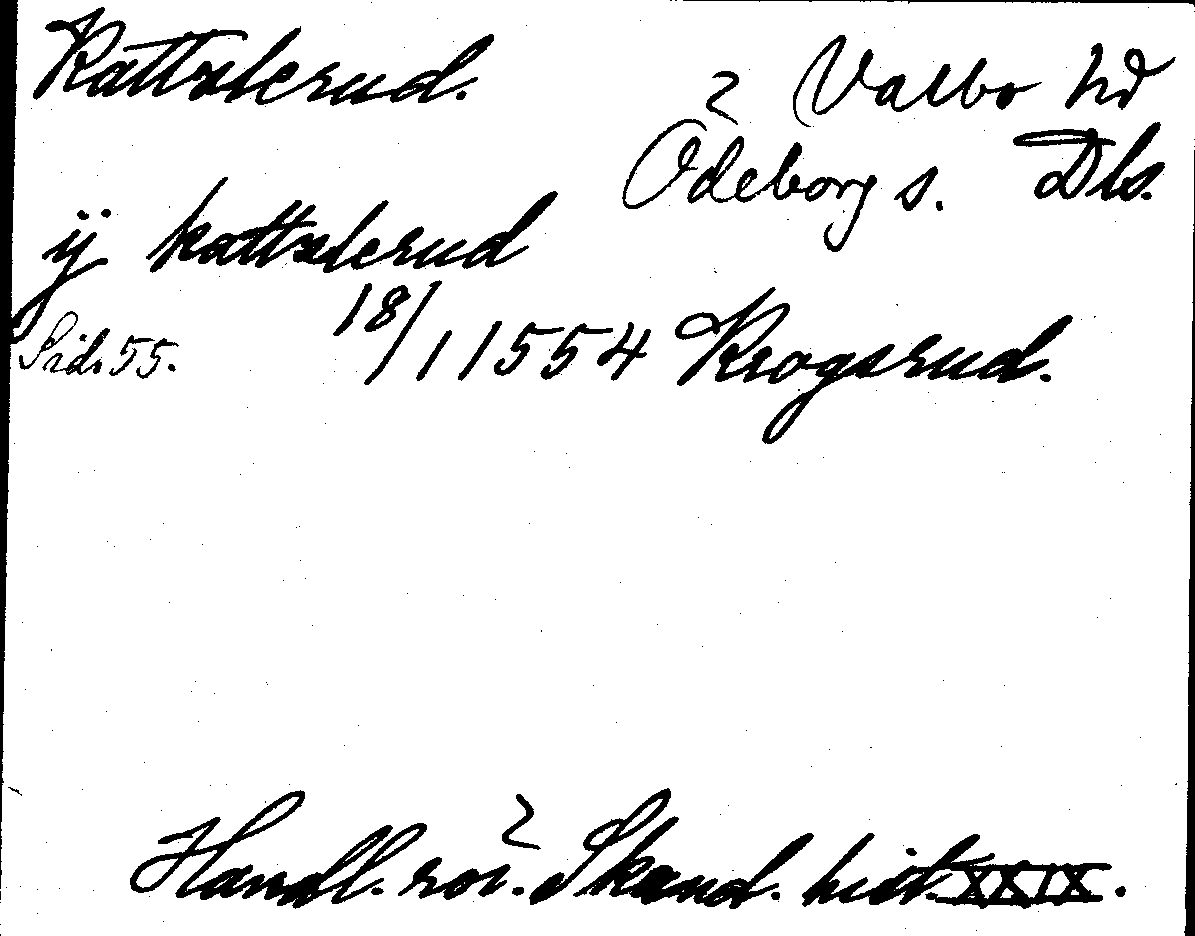 Kattxlerud. 2 Valbo hd
Odeborg s. Dls.
ÿ kattxlerud
Sid. 55. 18/1 1554 Krogsrud.
Handl. rör. Skand. hist. XXIX.